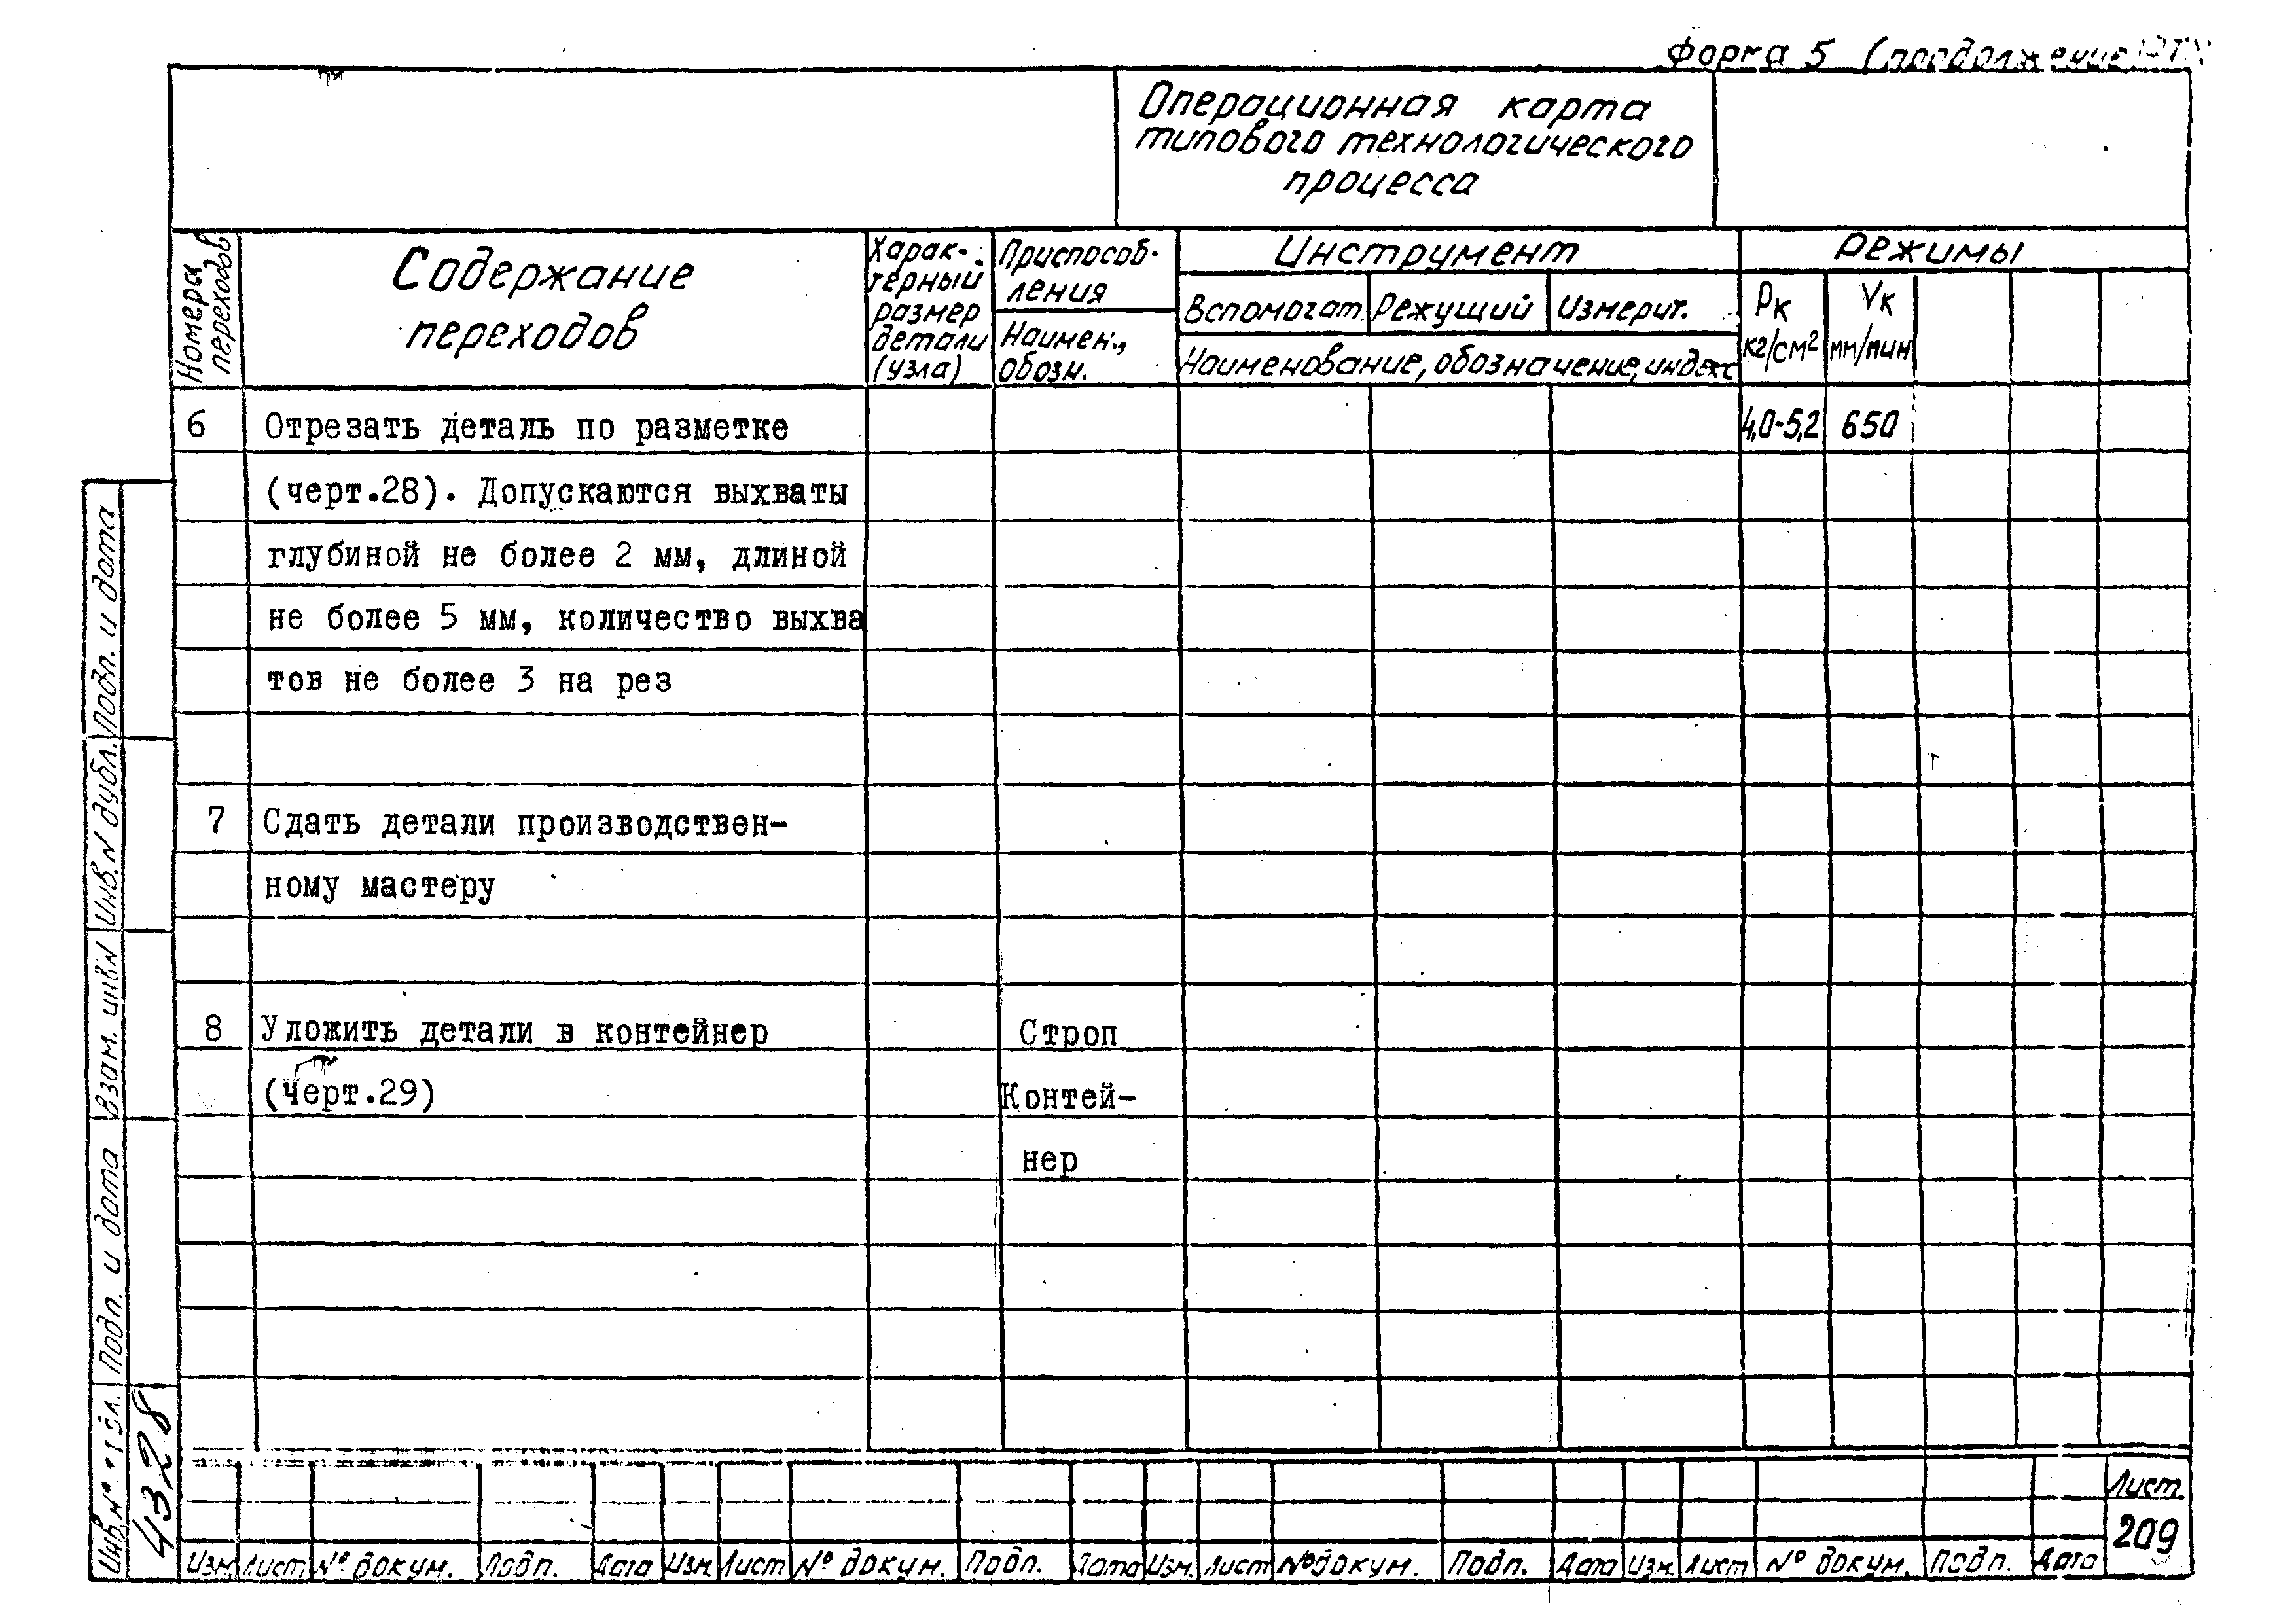 Форма 5 (продолжение
Операционная карта
типового технологического
процесса
Номера
переходов
Содержание
переходов
Харак-
терный
размер
детали
(узла)
Приспособ-
ления
Наимен.,
обозн.
Инструмент
Вспомогат. Режущий Измерит.
Наименование, обозначение, индекс
Режимы
Рк
кг/см²
Vк
мм/мин
6 Отрезать деталь по разметке 4,0-5,2 650
(черт.28). Допускаются выхваты
глубиной не более 2 мм, длиной
не более 5 мм, количество выхва
тов не более 3 на рез
7 Сдать детали производствен-
ному мастеру
8 Уложить детали в контейнер Строп
(Черт.29) Контей-
нер
Подп. и дата
Инв.N дубл.
Взам. инв N
Подп. и дата
Инв. N°
4328
Лист
209
Изм Лист N° докум. Подп. Дата Изм. Лист N° докум. Подп. Дата Изм. Лист N° докум. Подп. Дата Изм. Лист N° докум. Подп. Дата